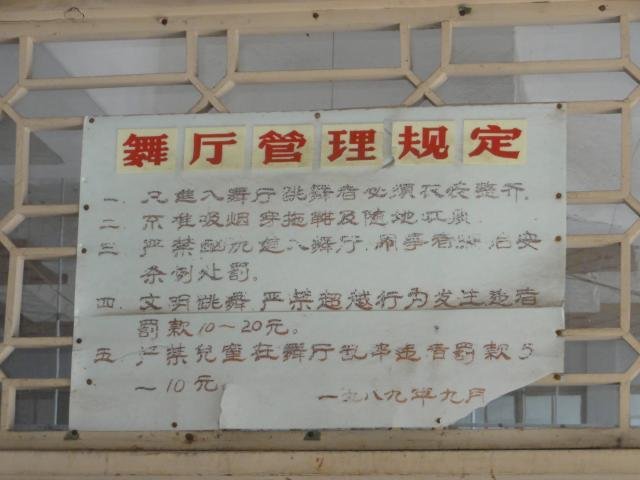 舞厅管理规定
一、凡進入舞厅跳舞者必须衣装整齐
二、不准吸烟穿拖鞋及随地吐痰
三、严禁酗沉進入舞厅,闹事者 治安
条例处罚。
四、文明跳舞严禁超越行为发生違者
罚款10~20元。
五、严禁兒童在舞厅 違者罚款5
~10元
一九八九年九月